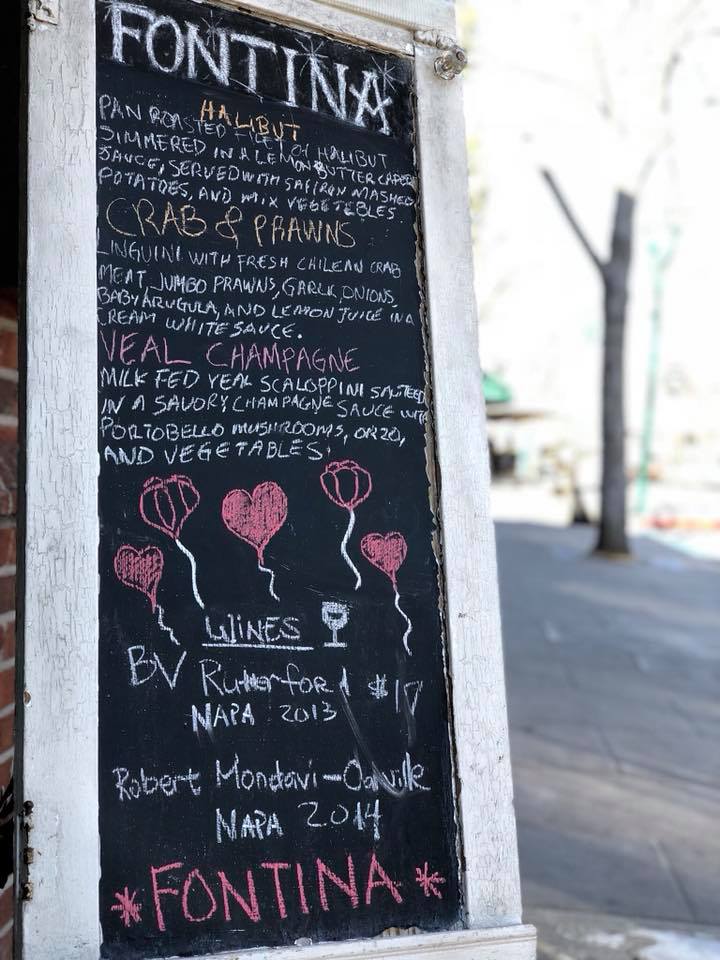 FONTINA
HALIBUT
PAN ROASTED FILET OF HALIBUT
SIMMERED IN A LEMON BUTTER CAPER
SAUCE, SERVED WITH SAFFRON MASHED
POTATOES, AND MIX VEGETABLES
CRAB & PRAWNS
LINGUINI WITH FRESH CHILEAN CRAB
MEAT, JUMBO PRAWNS, GARLIC, ONIONS,
BABY ARUGULA, AND LEMON JUICE IN A
CREAM WHITE SAUCE.
VEAL CHAMPAGNE
MILK FED VEAL SCALOPPINI SAUTEED
IN A SAVORY CHAMPAGNE SAUCE WITH
PORTOBELLO MUSHROOMS, ORZO,
AND VEGETABLES.
WINES
BV Rutherford $17
NAPA 2013
Robert Mondavi-Oakville
NAPA 2014
*FONTINA*